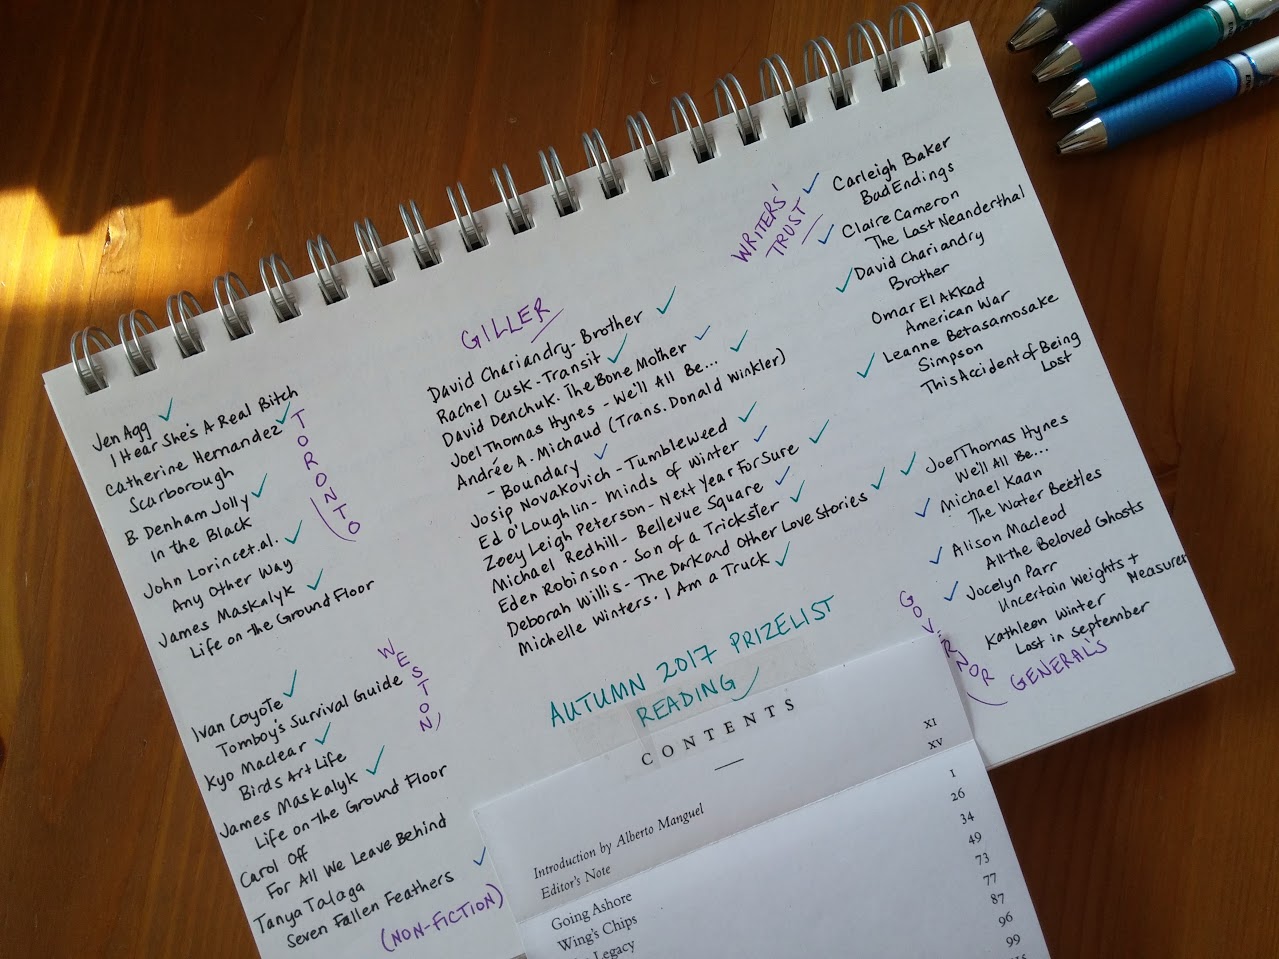 Jen Agg
I Hear She's A Real Bitch
Catherine Hernandez
Scarborough
B. Denham Jolly
In the Black
John Lorinc et.al.
Any Other Way
James Maskalyk
Life on the Ground Floor
TORONTO
Ivan Coyote
Tomboy's Survival Guide
Kyo Maclear
Birds Art Life
James Maskalyk
Life on the Ground Floor
Carol Off
For All We Leave Behind
Tanya Talaga
Seven Fallen Feathers
WESTON
(NON-FICTION)
GILLER
David Chariandry - Brother
Rachel Cusk - Transit
David Denchuk - The Bone Mother
Joel Thomas Hynes - We'll All Be...
Andrée A. Michaud (Trans. Donald Winkler)
- Boundary
Josip Novakovich - Tumbleweed
Ed O'Loughlin - Minds of Winter
Zoey Leigh Peterson - Next Year For Sure
Michael Redhill - Bellevue Square
Eden Robinson - Son of a Trickster
Deborah Willis - The Dark and Other Love Stories
Michelle Winters - I Am a Truck
WRITERS'
TRUST
Carleigh Baker
Bad Endings
Claire Cameron
The Last Neanderthal
David Chariandry
Brother
Omar El Akkad
American War
Leanne Betasamosake
Simpson
This Accident of Being
Lost
Joel Thomas Hynes
We'll All Be...
Michael Kaan
The Water Beetles
Alison Macleod
All the Beloved Ghosts
Jocelyn Parr
Uncertain Weights +
Measures
Kathleen Winter
Lost in September
GOVERNOR
GENERAL'S
AUTUMN 2017 PRIZELIST
READING
CONTENTS
Introduction by Alberto Manguel XI
Editor's Note XV
Going Ashore 1
Wing's Chips 26
Legacy 34
49
73
77
87
96
99